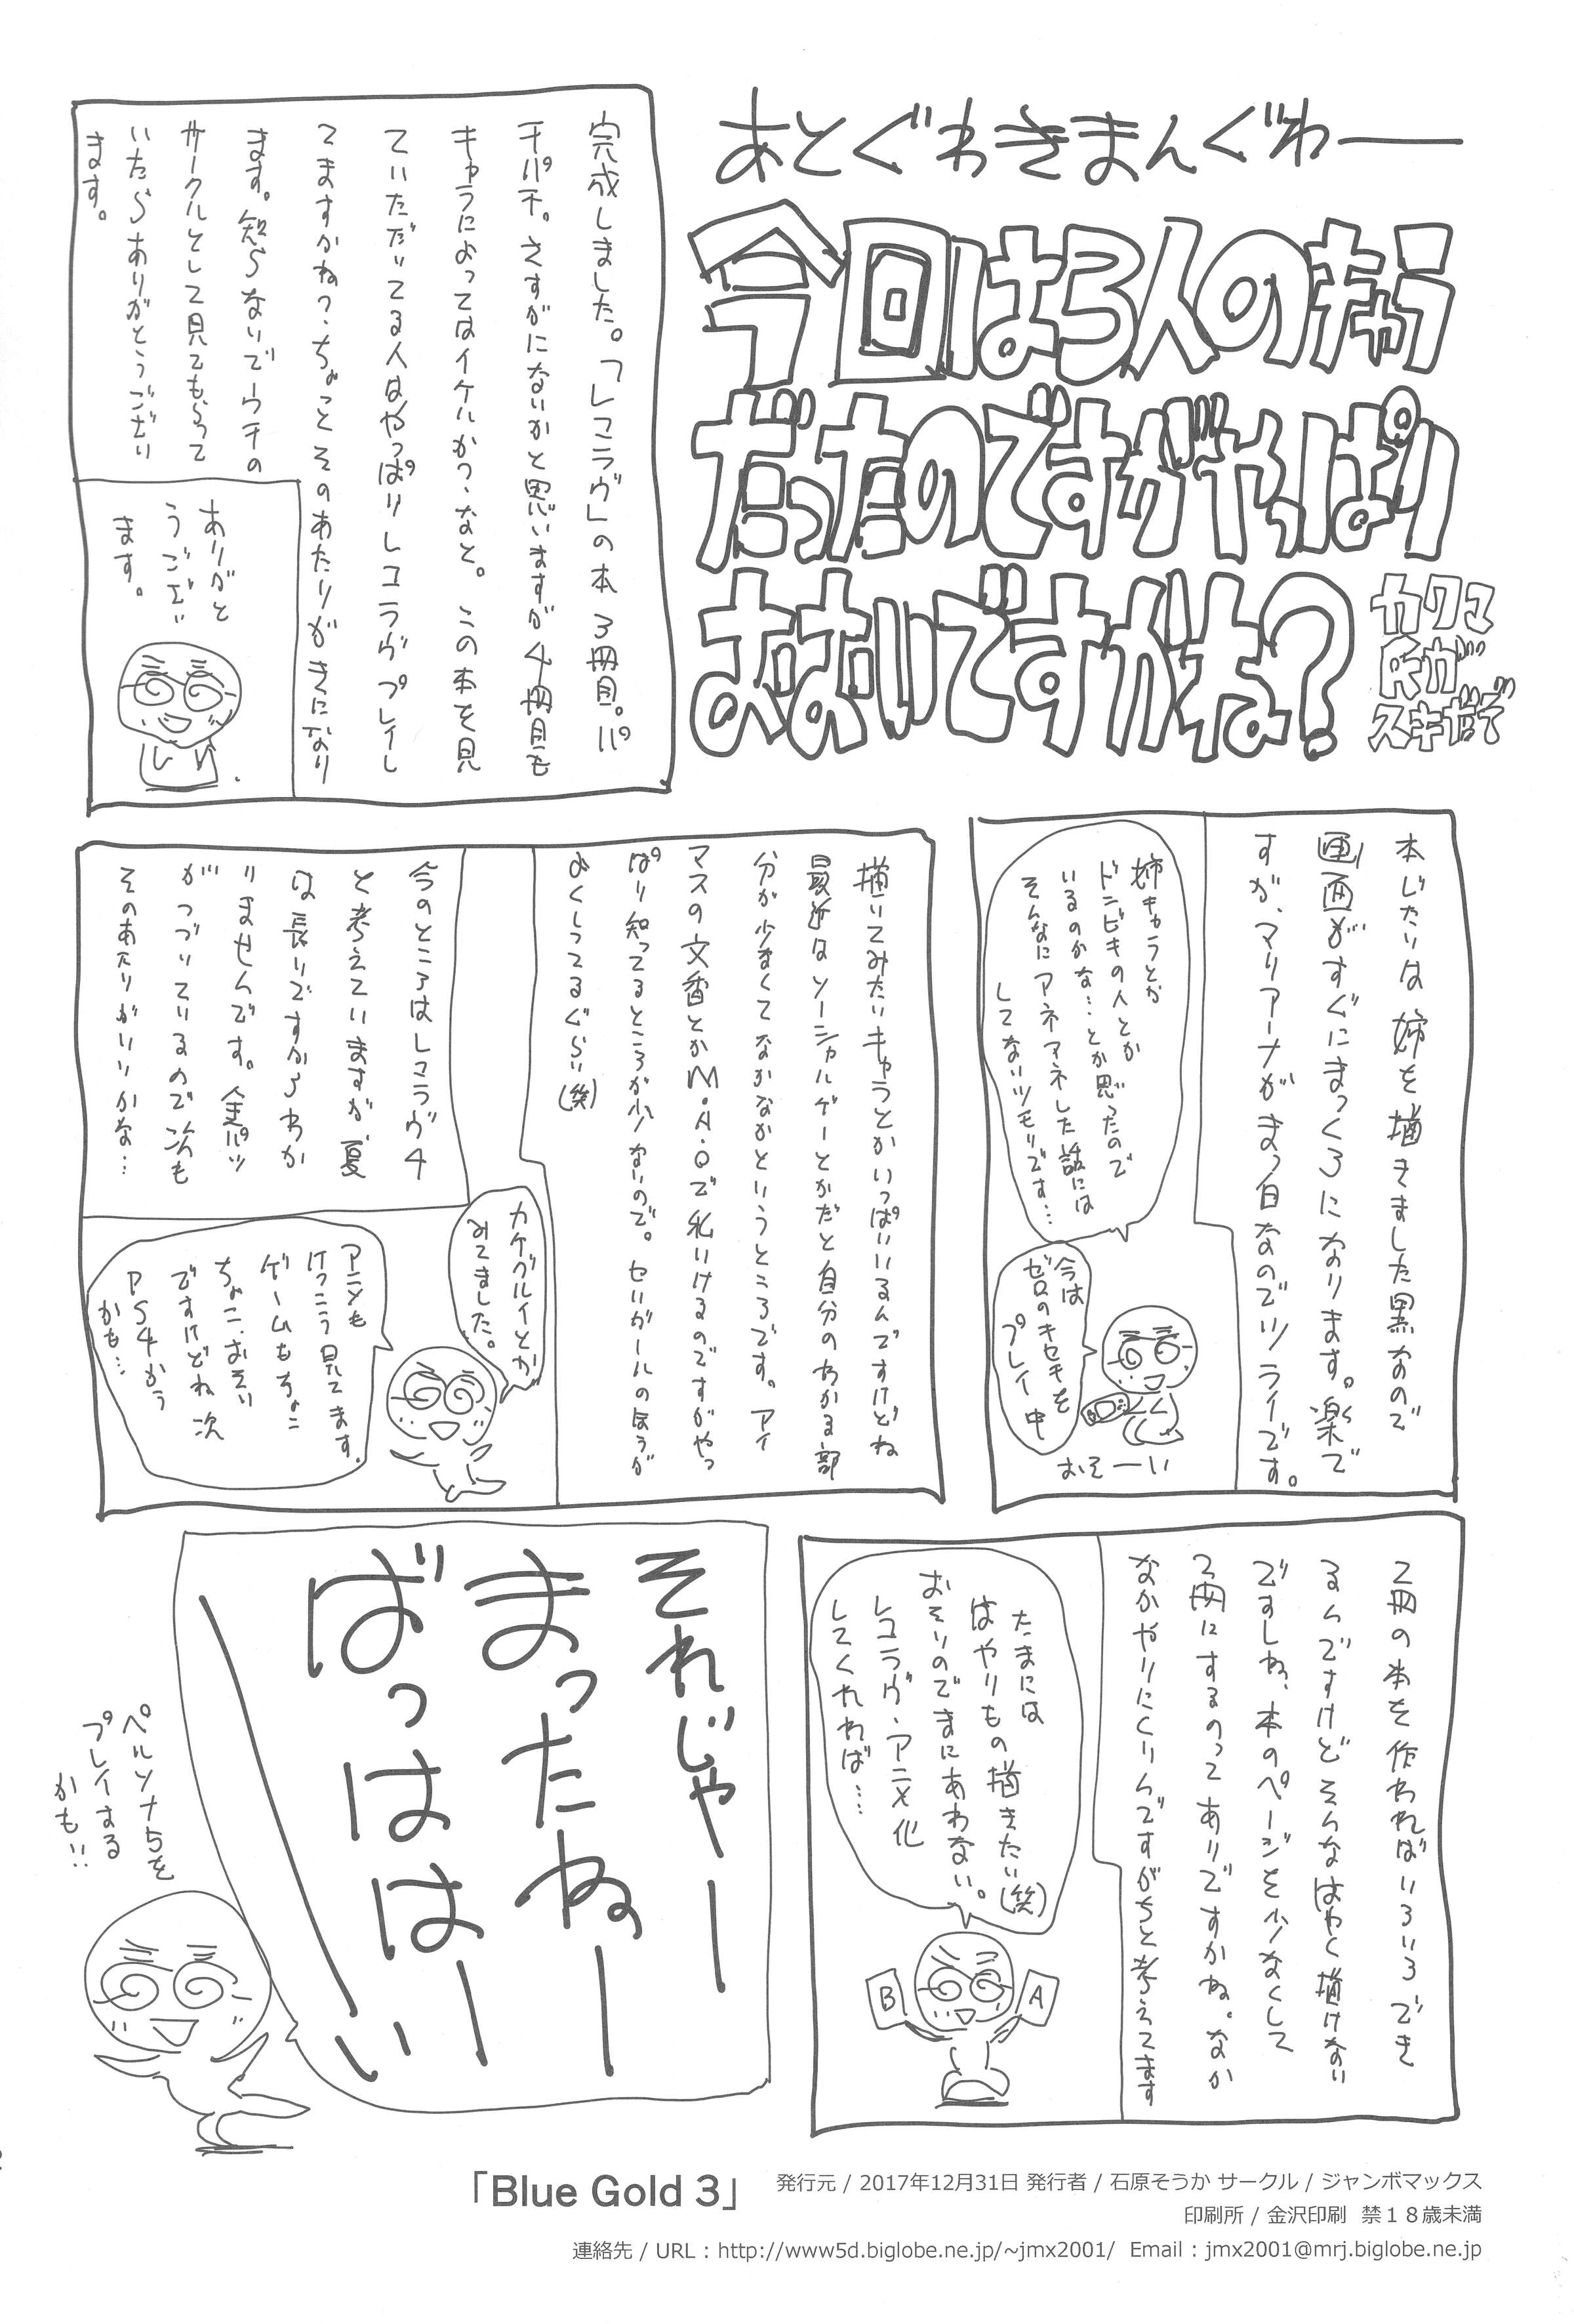 あとぐわきまんぐわー
今回は3人のキャラ
だったのですがやっぱり
おおいですかね?
カワマ
Rが
スキだぞ
完成しました。「レコラヴ」の本3冊目。パ
チパチ。さすがにないかと思いますが4冊目も
キャラによってはイケルか?なと。この本を見
ていただいてる人はやっぱりレコラヴプレイし
てますかね?ちょっとそのあたりがきになり
ます。知らないでウチの
サークルとして見てもらって
いたらありがとうござい
ます。
ありがと
うござい
ます。
本じたいは姉を描きました黒なので
画面がすぐにまっくろになります。楽で
すが、マリアーナがまっ白なのでツライです。
姉キャラとか
ドンビキの人とか
いるのかな…とか思ったので
そんなにアネアネした話には
してないツモリです…
今は
ゼロのキセキを
プレイ中
おそーい
描いてみたいキャラとかいっぱいいるんですけどね
最近はソーシャルゲーとかだと自分のわかる部
分が少なくてなかなかというところです。アイ
マスの文香とかM・A・Oで私いけるのですがやっ
ぱり知ってるところが少ないので。セいガールのほうが
よくしってるぐらい(笑)
今のところはレコラヴ4
と考えていますが夏
は長いですからわか
りませんです。金パツ
がつづいているので次も
そのあたりがいいかな…
カケグルイとか
みてました。
アニメも
けっこう見てます。
ゲームもちょこ
ちょこ。おそい
ですけどね次
PS4かう
かも…
2冊の本を作ればいろいろでき
るんですけどそんなはやく描けない
ですしね、本のページを少なくして
2冊にするのってありですかね。なか
なかやりにくいんですがちと考えてます
たまには
はやりもの描きたい(笑)
おそいのでまにあわない。
レコラヴ・アニメ化
してくれれば…
B
A
それじゃー
まったねー
ばっははーい
ペルソナ5を
プレイする
かも…
「Blue Gold 3」
発行元 / 2017年12月31日 発行者 / 石原そうか サークル / ジャンボマックス
印刷所 / 金沢印刷 禁18歳未満
連絡先 / URL : http://www5d.biglobe.ne.jp/~jmx2001/ Email : jmx2001@mrj.biglobe.ne.jp